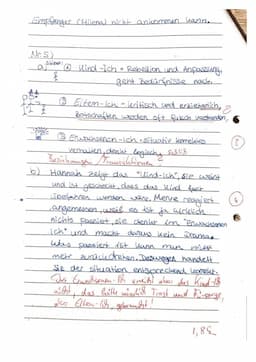 Empfänger (Milena) nicht ankommen kann.
Nr. 5)
a) ① Kind-Ich → Rebellion und Anpassung,
geht Bedürfnisse nach.
② Eltern-Ich → kritisch und erzieherisch,
Botschaften werden oft falsch verstanden.
③ Erwachsenen-Ich → situativ korrektes
Verhalten, denkt logisch
Beziehungen / Transaktionen?
b) Hannah zeigt das "Kind-Ich", sie weint
und ist geschockt, dass das Kind fast
überfahren worden wäre. Merve reagiert
angemessen, weil es ist ja wirklich
nichts passiert. Sie denkt im "Erwachsenen
Ich" und macht daraus kein Drama.
Was passiert ist kann man nicht
mehr zurückdrehen. Deswegen handelt
Sie der Situation entsprechend korrekt.
Das Erwachsenen-Ich erreicht aber das Kind-Ich
nicht, das hätte nämlich Trost und Fürsorge,
also Eltern-Ich gebraucht!